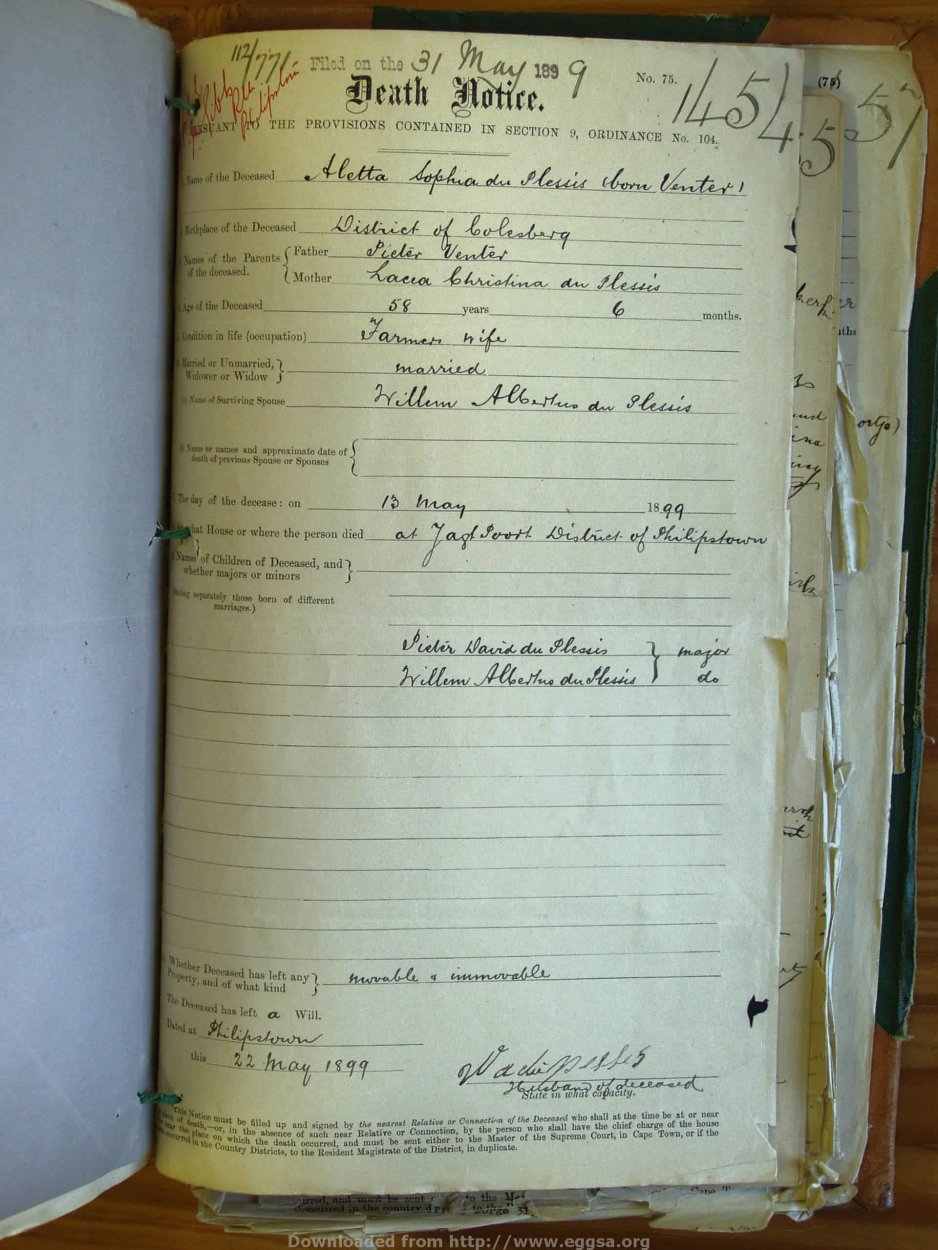 112/771
Filed on the 31 May 1899
No. 75.
1454
(75)
Death Notice.
PURSUANT TO THE PROVISIONS CONTAINED IN SECTION 9, ORDINANCE No. 104.
Name of the Deceased Aletta Sophia du Plessis (born Venter)
Birthplace of the Deceased District of Colesberg
Names of the Parents of the deceased. Father Pieter Venter
Mother Lacea Christina du Plessis
Age of the Deceased 58 years 6 months.
Condition in life (occupation) Farmers wife
Married or Unmarried, Widower or Widow married
Name of Surviving Spouse Willem Albertus du Plessis
Name or names and approximate date of
death of previous Spouse or Spouses
The day of the decease: on 13 May 1899
At what House or where the person died at Jagt Poort District of Philipstown
Names of Children of Deceased, and
whether majors or minors
separately those born of different
marriages.)
Pieter David du Plessis } major
Willem Albertus du Plessis } do
Whether Deceased has left any
Property, and of what kind movable & immovable
The Deceased has left a Will.
Dated at Philipstown
this 22 May 1899
W A du Plessis
Husband of deceased
State in what capacity.
This Notice must be filled up and signed by the nearest Relative or Connection of the Deceased who shall at the time be at or near
of death,—or, in the absence of such near Relative or Connection, by the person who shall have the chief charge of the house
the place on which the death occurred, and must be sent either to the Master of the Supreme Court, in Cape Town, or if the
occurred in the Country Districts, to the Resident Magistrate of the District, in duplicate.
Downloaded from http://www.eggsa.org